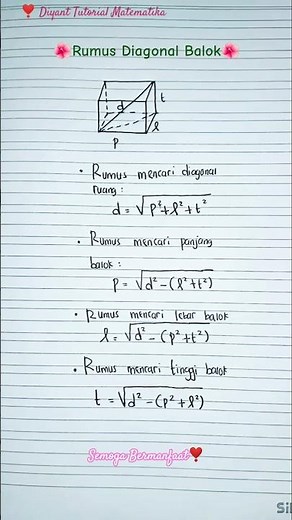 ❣ Diyant Tutorial Matematika
🌺Rumus Diagonal Balok🌺
d
t
l
p
• Rumus mencari diagonal
ruang :
d = √p²+l²+t²
• Rumus mencari panjang
balok :
p = √d²-(l²+t²)
• Rumus mencari lebar balok
l = √d²-(p²+t²)
• Rumus mencari tinggi balok
t = √d²-(p²+l²)
Semoga Bermanfaat❣
Sil